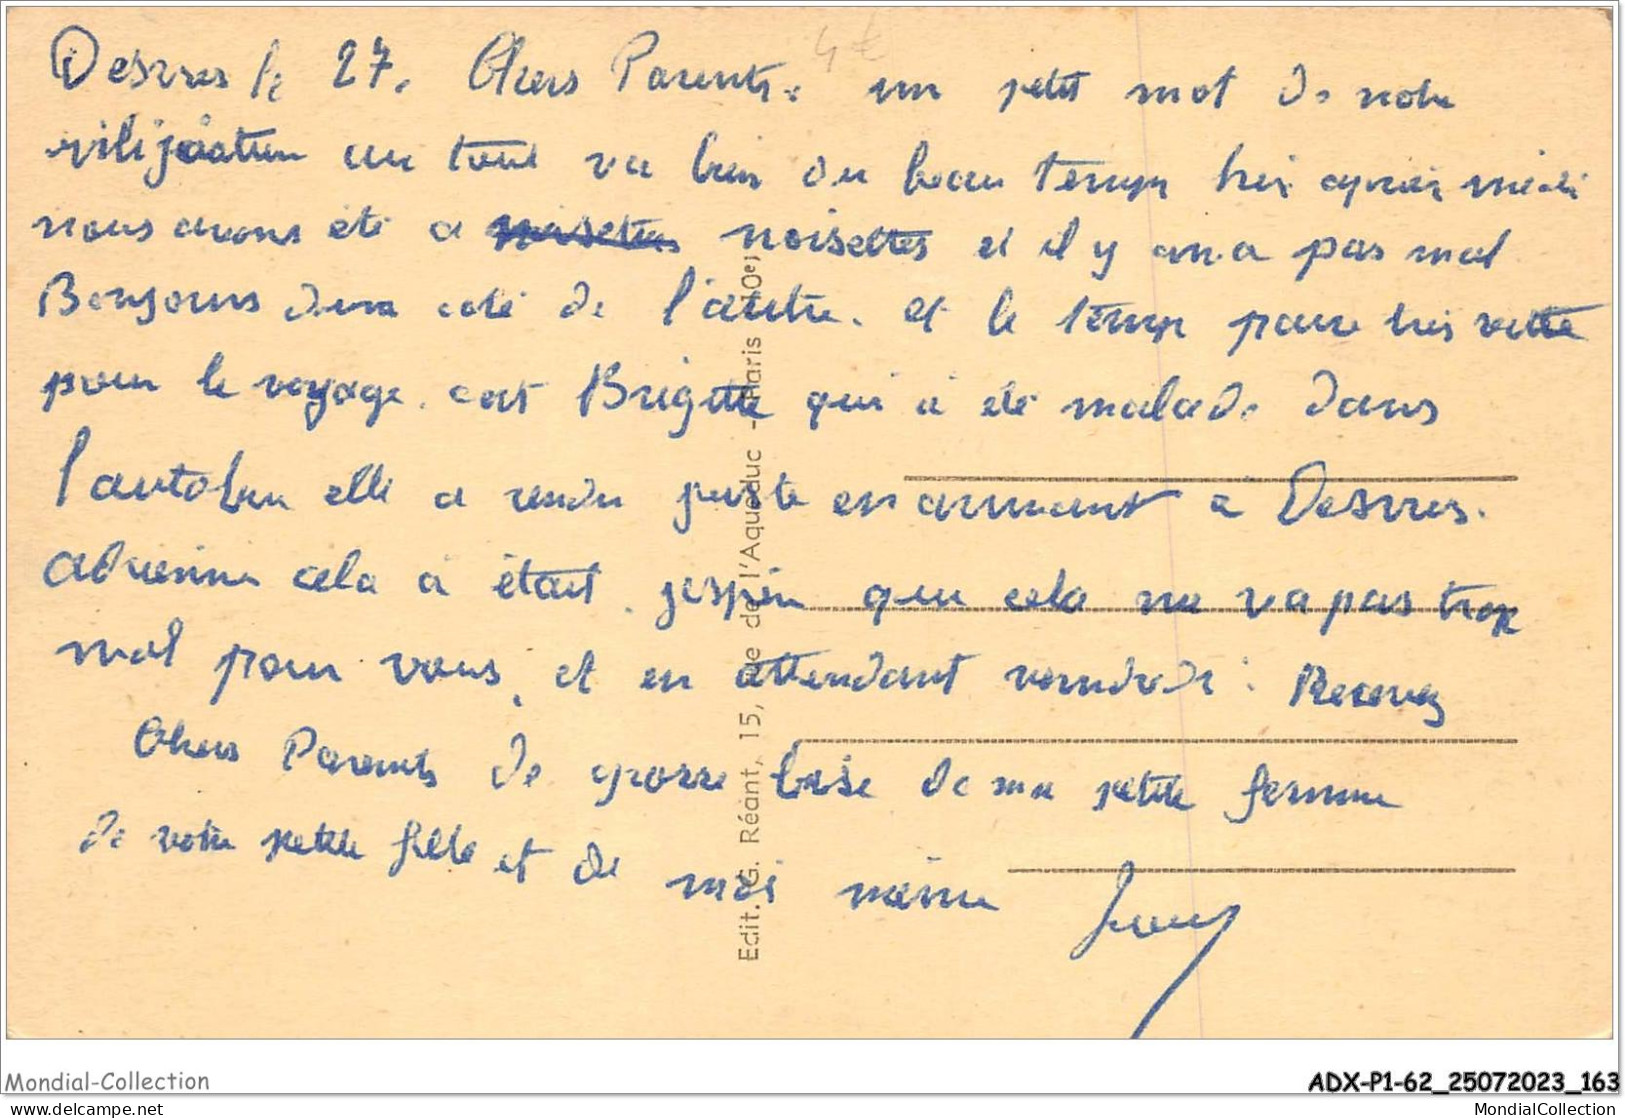 Desvres le 27. Chers Parents. un petit mot de notre
vilijiation ou tout va bien du beau temps hier après midi
nous avons été a noisettes noisettes et il y an a pas mal
Bonjours d'un coté de l'autre. et le temps passe très vitte
pour le voyage. cest Brigitte qui à été malade dans
l'autobus elle a rendu juste en arrivant à Desvres.
adrienne cela à était. j'espère que cela ne va pas trop
mal pour vous, et en attendant vendredi. Recevez
Chers Parents de grosse bise de ma petite femme
de votre petite fille et de moi même
4€
Edit. G. Réant, 15, rue de l'Aqueduc - Paris (10e)
Mondial-Collection
ADX-P1-62_25072023_163
delcampe.net
MondialCollection